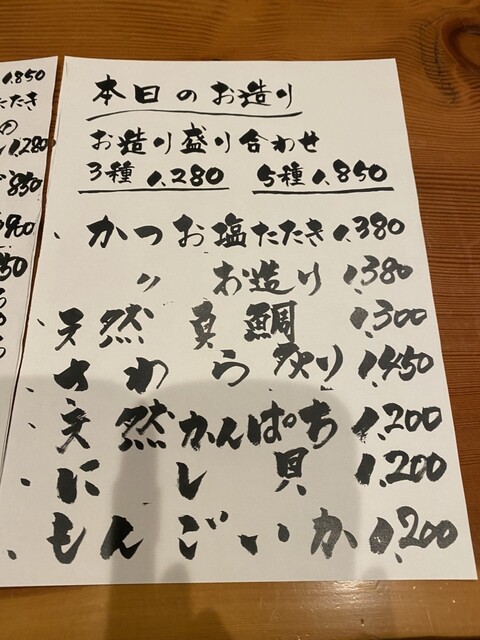 本日のお造り
お造り盛り合わせ
3種 1,280 5種 1,850
、かつお塩たたき 1,380
〃 お造り 1,380
、天然真鯛 1,300
、さわら炙り 1,450
、天然かんぱち 1,200
、にし貝 1,200
、もんごいか 1,200
1,850
たたき
の
1,280